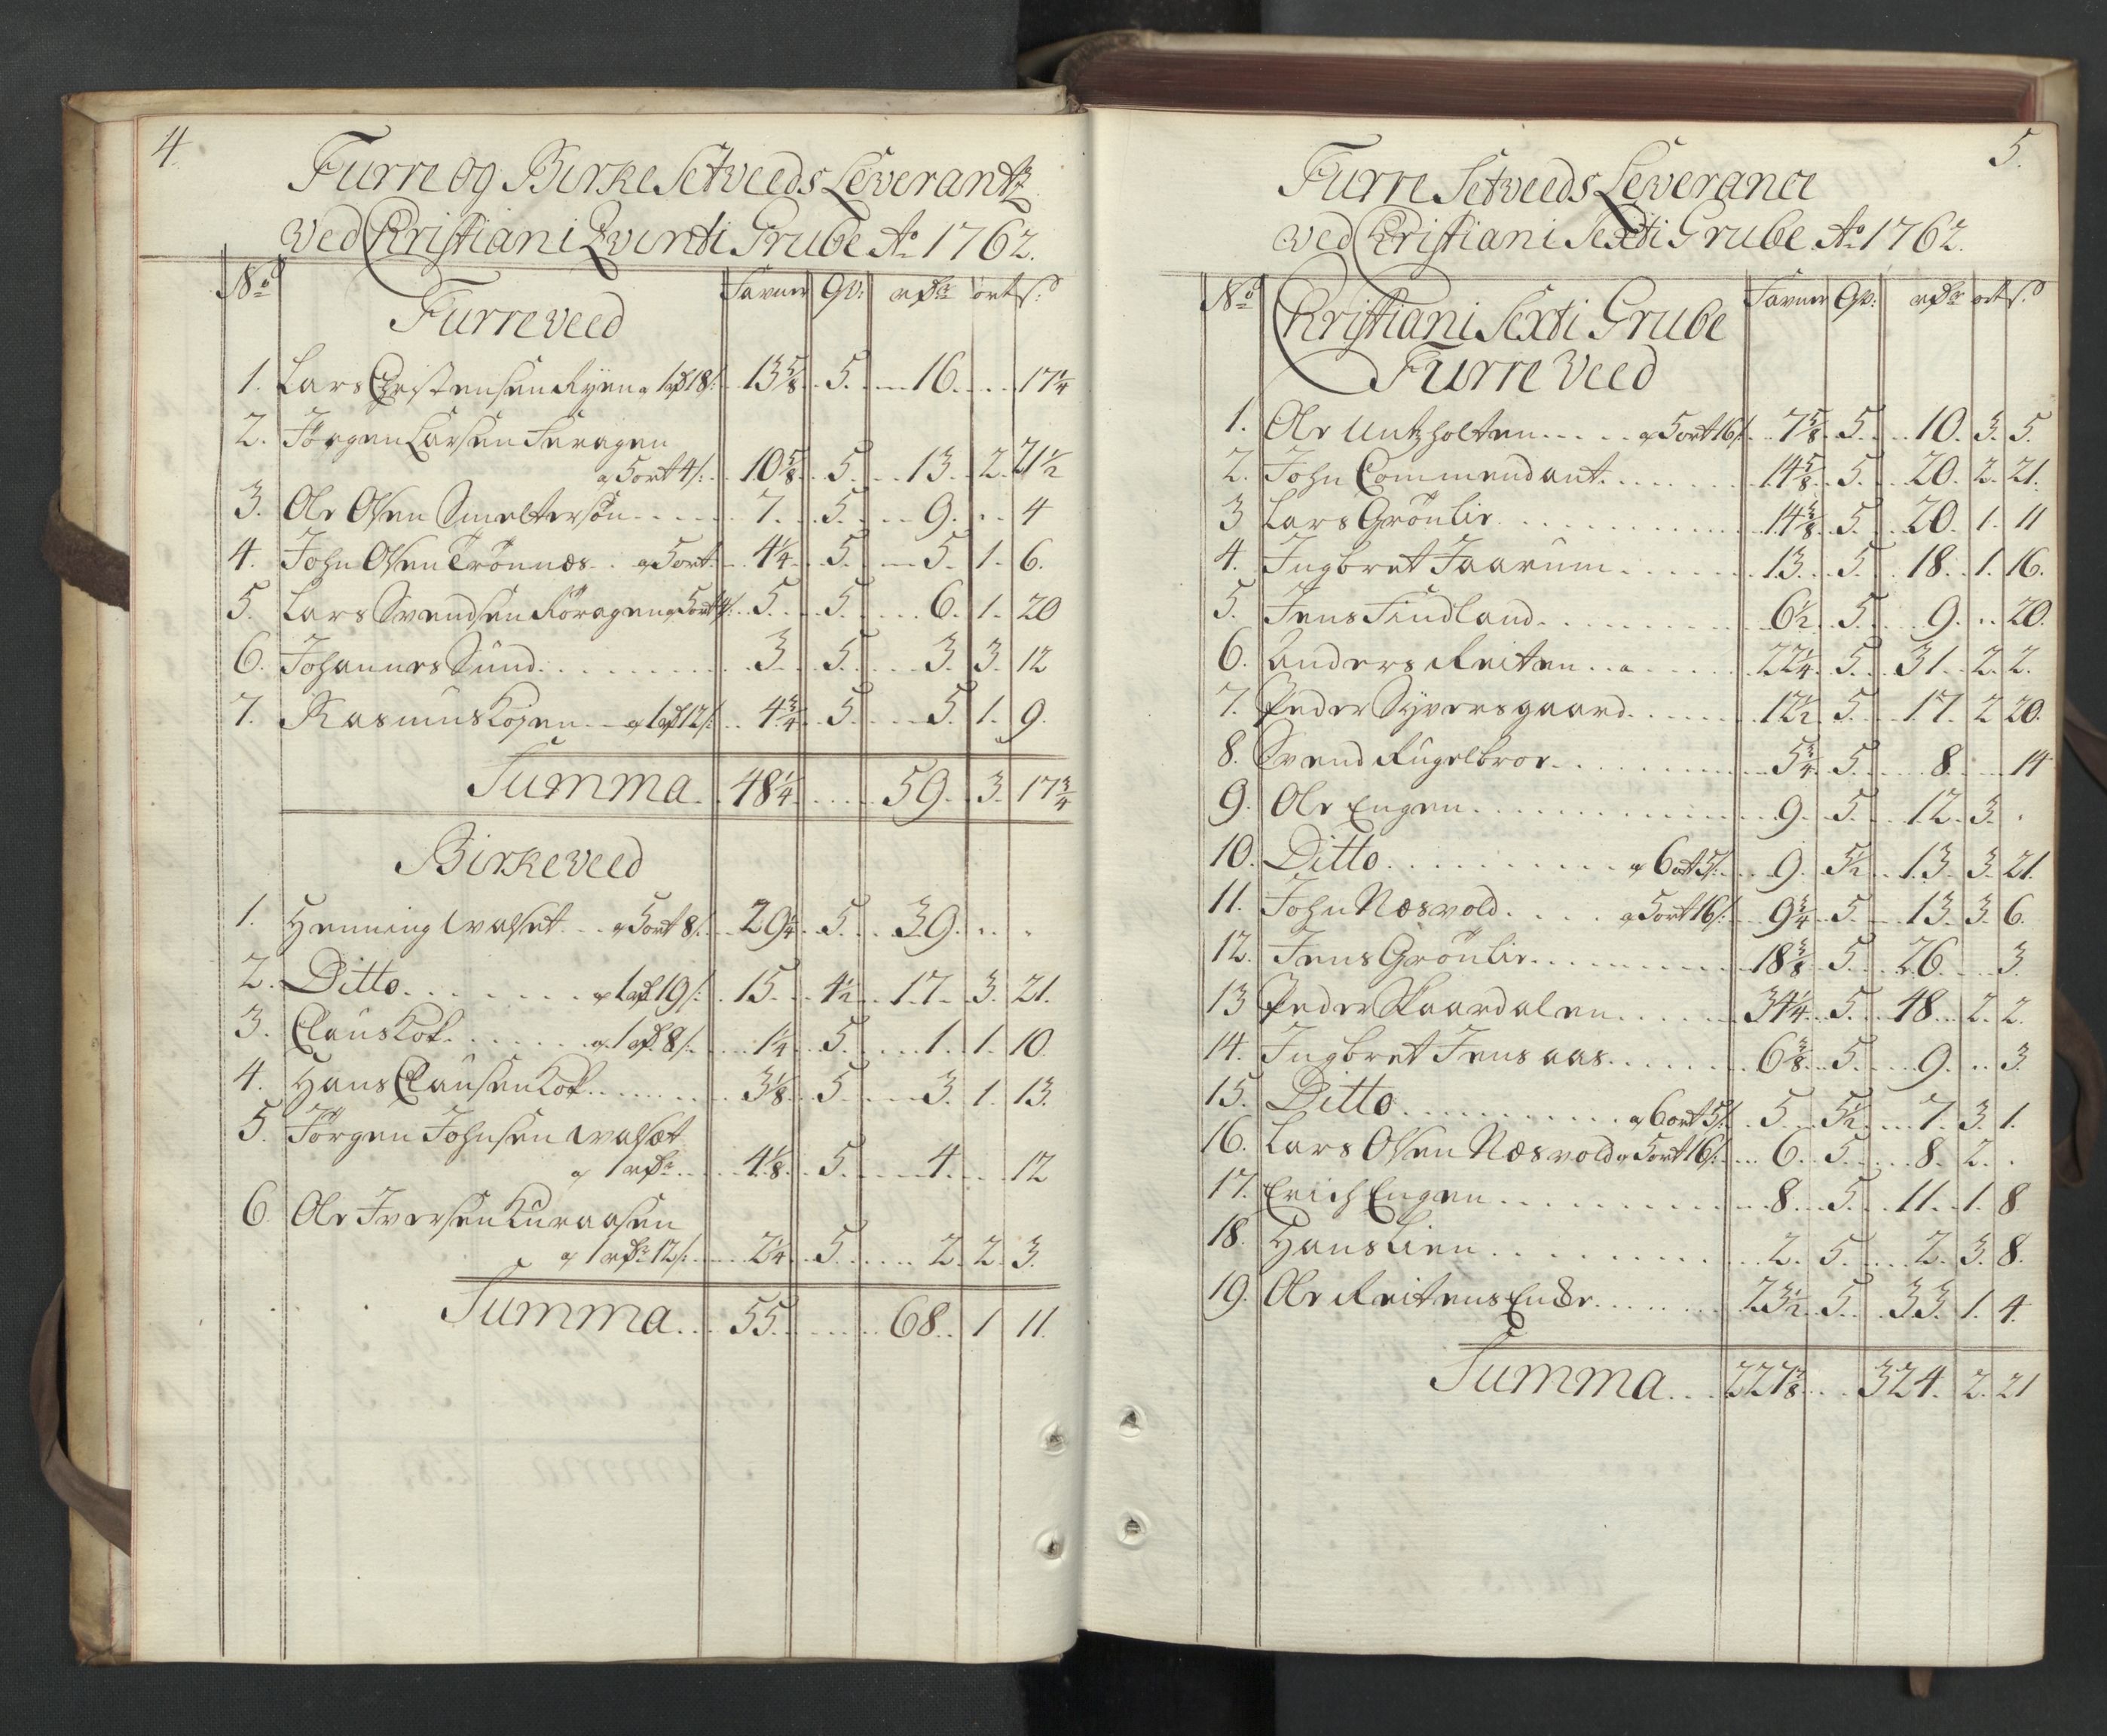 4.
Furre og Birke Setveeds Leverantz
ved Christiani Qvinti Grube Ao 1762.
No Favner Qv: rdr ort s:
Furreveed
1. Lars Christensen Ryen a 1 rd 18 s: 13 5/8 5. 16. 17 1/4
2. Jörgen Larsen Feragen
a 5 ort 4 s: 10 5/8 5. 13. 2. 21 1/2
3. Ole Olsen Smeltersön 7. 5. 9. 4
4. John Olsen Trönnæs a 5 ort 4 1/4 5. 5. 1. 6.
5. Lars Svendsen Röragen a 5 ort 4 s: 5. 5. 6. 1. 20
6. Johannes Sund 3. 5. 3. 3. 12
7. Rasmus Kojen a 1 rd 12 s: 4 3/4 5. 5. 1. 9.
Summa 48 1/4 59. 3. 17 3/4
Birkeveed
1. Henning Walset a 5 ort 8 s: 29 1/4 5. 39.
2. Ditto a 1 rd 19 s: 15 4 1/2 17. 3. 21.
3. Claus Kok a 1 rd 8 s: 1 1/4 5. 1. 1. 10.
4. Hans Clausen Kok 3 1/8 5 3. 1. 13.
5. Jörgen Johnsen Walset
a 1 rdr 4 1/8 5. 4. 12
6. Ole Iversen Kuraasen
a 1 rdr 12 s: 2 1/4 5. 2. 2. 3.
Summa 55. 68. 1 11.
5.
Furre Setveeds Leverance
ved Christiani Sexti Grube Ao 1762.
No Favner Qv: rdr ort s:
Christiani Sexti Grube
Furre Veed
1. Ole Untzholten a 5 ort 16 s: 7 5/8 5. 10. 3. 5.
2. John Commendant 14 5/8 5. 20. 2. 21.
3 Lars Grönlie 14 3/8 5. 20. 1. 11
4. Ingbret Aarum 13. 5. 18. 1. 16.
5. Jens Findland 6 1/2 5. 9. 20.
6. Anders Reiten 22 1/4 5. 31. 2. 2.
7. Peder Syversgaard 12 1/2 5. 17. 2 20.
8. Svend Kugelbroe 5 3/4 5. 8. 14
9. Ole Engen 9. 5. 12. 3.
10. Ditto a 6 ort 5 s: 9. 5 1/2 13. 3. 21.
11. John Næsvold a 5 ort 16 s: 9 3/4 5. 13. 3. 6.
12. Jens Grönlie 18 3/8 5. 26. 3.
13 Peder Skaardalen 34 1/4 5. 48. 2. 2.
14. Ingbret Jensaas 6 3/8 5. 9. 3.
15. Ditto a 6 ort 5 s: 5. 5 1/2 7. 3. 1.
16. Lars Olsen Næsvold a 5 ort 16 s: 6. 5. 8. 2.
17. Erich Engen 8. 5. 11. 1. 8.
18. Hans Lien 2. 5. 2. 3. 8.
19. Ole Reitens Enke 23 1/2 5. 33. 1. 4.
Summa 227 7/8 324. 2. 21